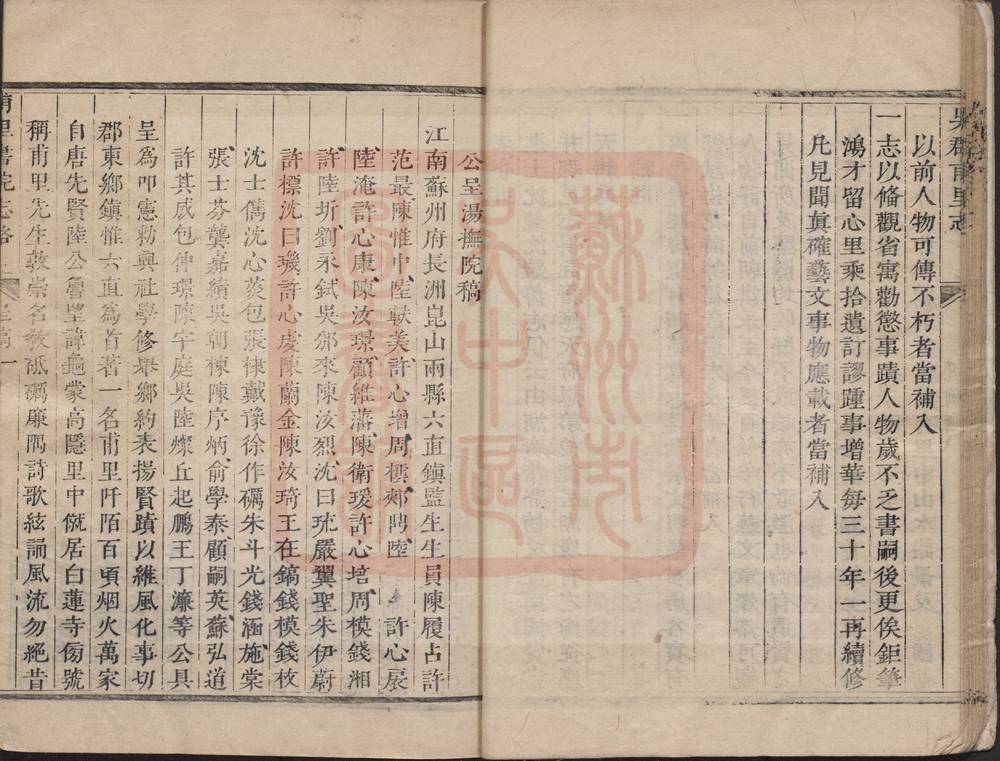 吳郡甫里志
以前人物可傳不朽者當補入
一志以備觀省寓勸懲事蹟人物歲不乏書嗣後更俟鉅筆
鴻才留心里乘拾遺訂謬踵事增華每三十年一再續修
凡見聞眞確藝文事物應載者當補入
公呈湯撫院稿
江南蘇州府長洲崑山兩縣六直鎮監生生員陳履占許
范最陳惟中陸軼美許心增周
陸淹許心康陳汝璟顧維藩陳衛瑗許心培周模錢湘
許陸圻劉永錫吳邠來陳汝烈沈曰琉嚴翼聖朱伊蔚
許標沈曰璣許心虔陳蘭金陳汝琦王在鎬錢模錢枚
沈士儁沈心葵包張棣戴豫徐作礪朱斗光錢涵施棠
張士芬龔嘉績吳朝棟陳序炳俞學泰顧嗣英蘇弘道
許其成包仲璟陳午庭吳陸燦丘起鵬王丁濂等公具
呈爲叩憲勑興社學修舉鄉約表揚賢蹟以維風化事切
郡東鄉鎮惟六直爲首著一名甫里阡陌百頃烟火萬家
自唐先賢陸公魯望諱龜蒙高隱里中僦居白蓮寺傍號
稱甫里先生敦崇名敎砥礪廉隅詩歌絃誦風流勿絕昔
甫里書院志畧